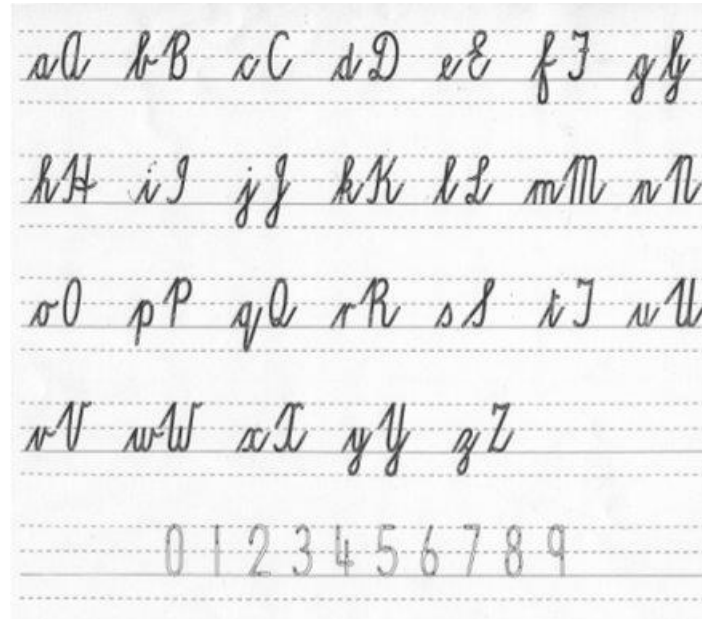 aA bB cC dD eE fF gG
hH iI jJ kK lL mM nN
oO pP qQ rR sS tT uU
vV wW xX yY zZ
0 1 2 3 4 5 6 7 8 9